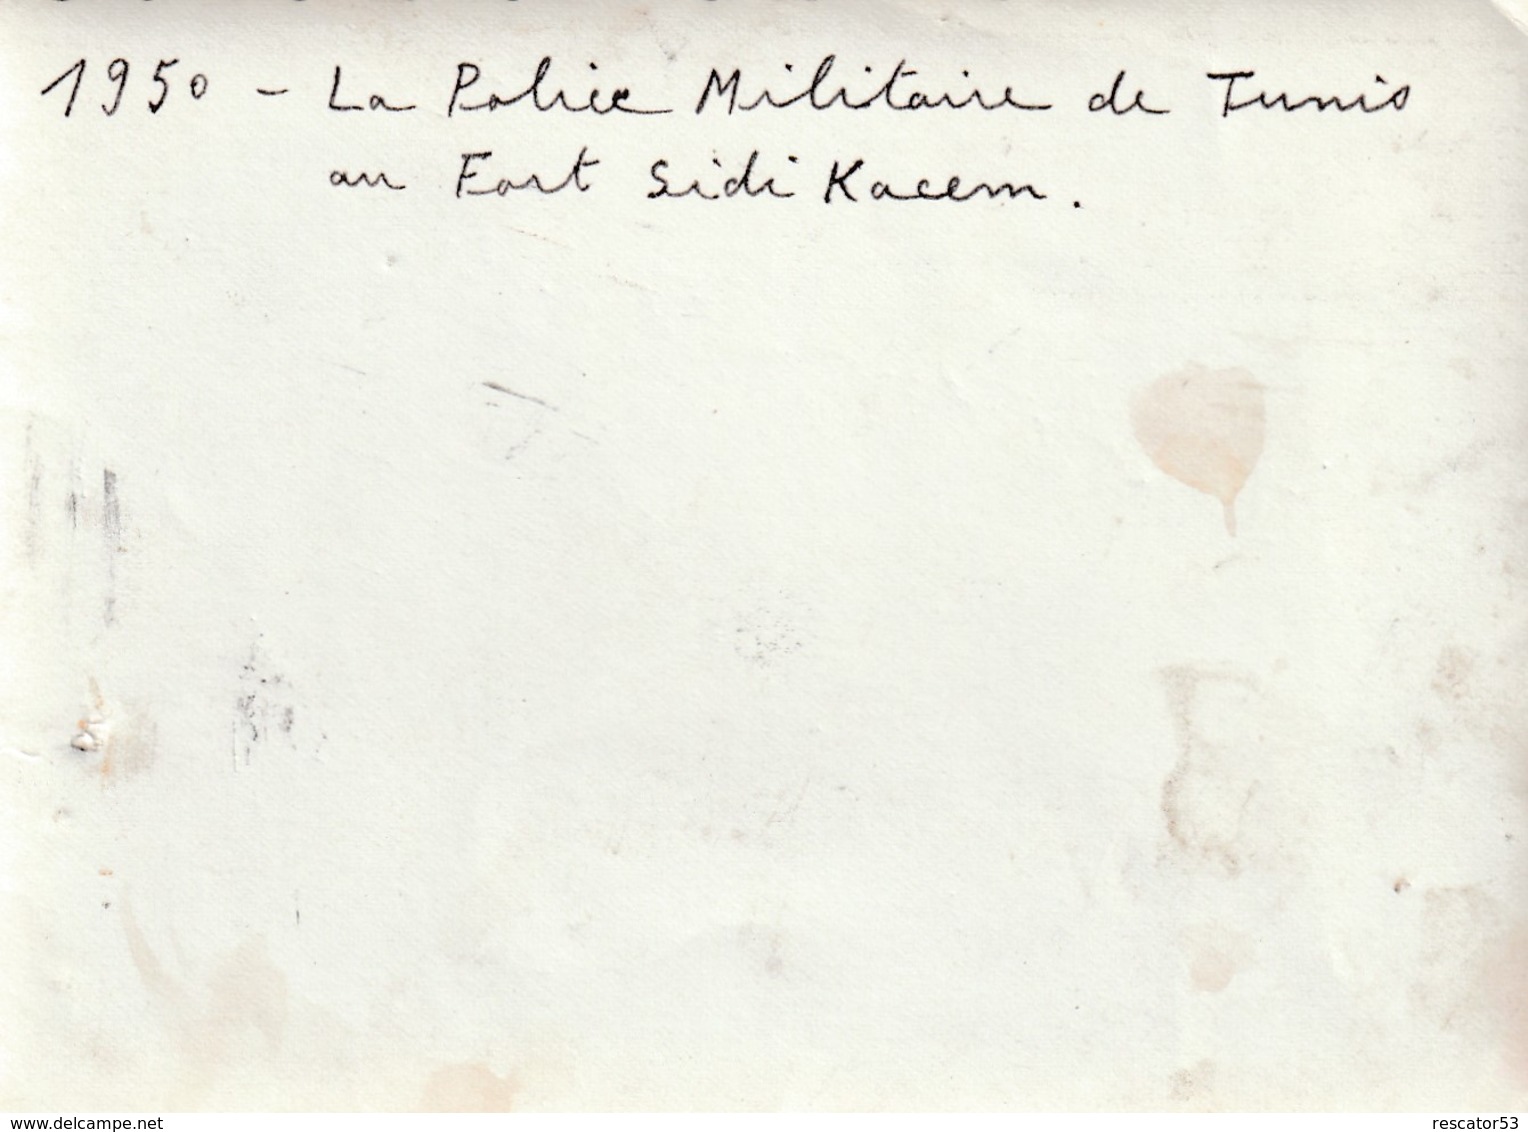 1950 - La Police Militaire de Tunis
au Fort Sidi Kacem.
www.delcampe.net
rescator53